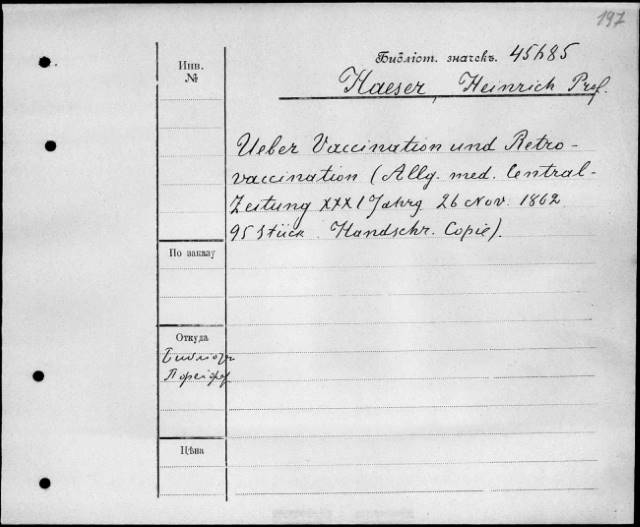 197
Инв.
№
Библіот. значекъ. 45685
Haeser, Heinrich Prof.
Ueber Vaccination und Retro-
vaccination (Allg. med. Central-
Zeitung XXXI Jahrg. 26 Nov. 1862
95 Stück. Handschr. Copie).
По заказу
Откуда
Библіот.
Цѣна